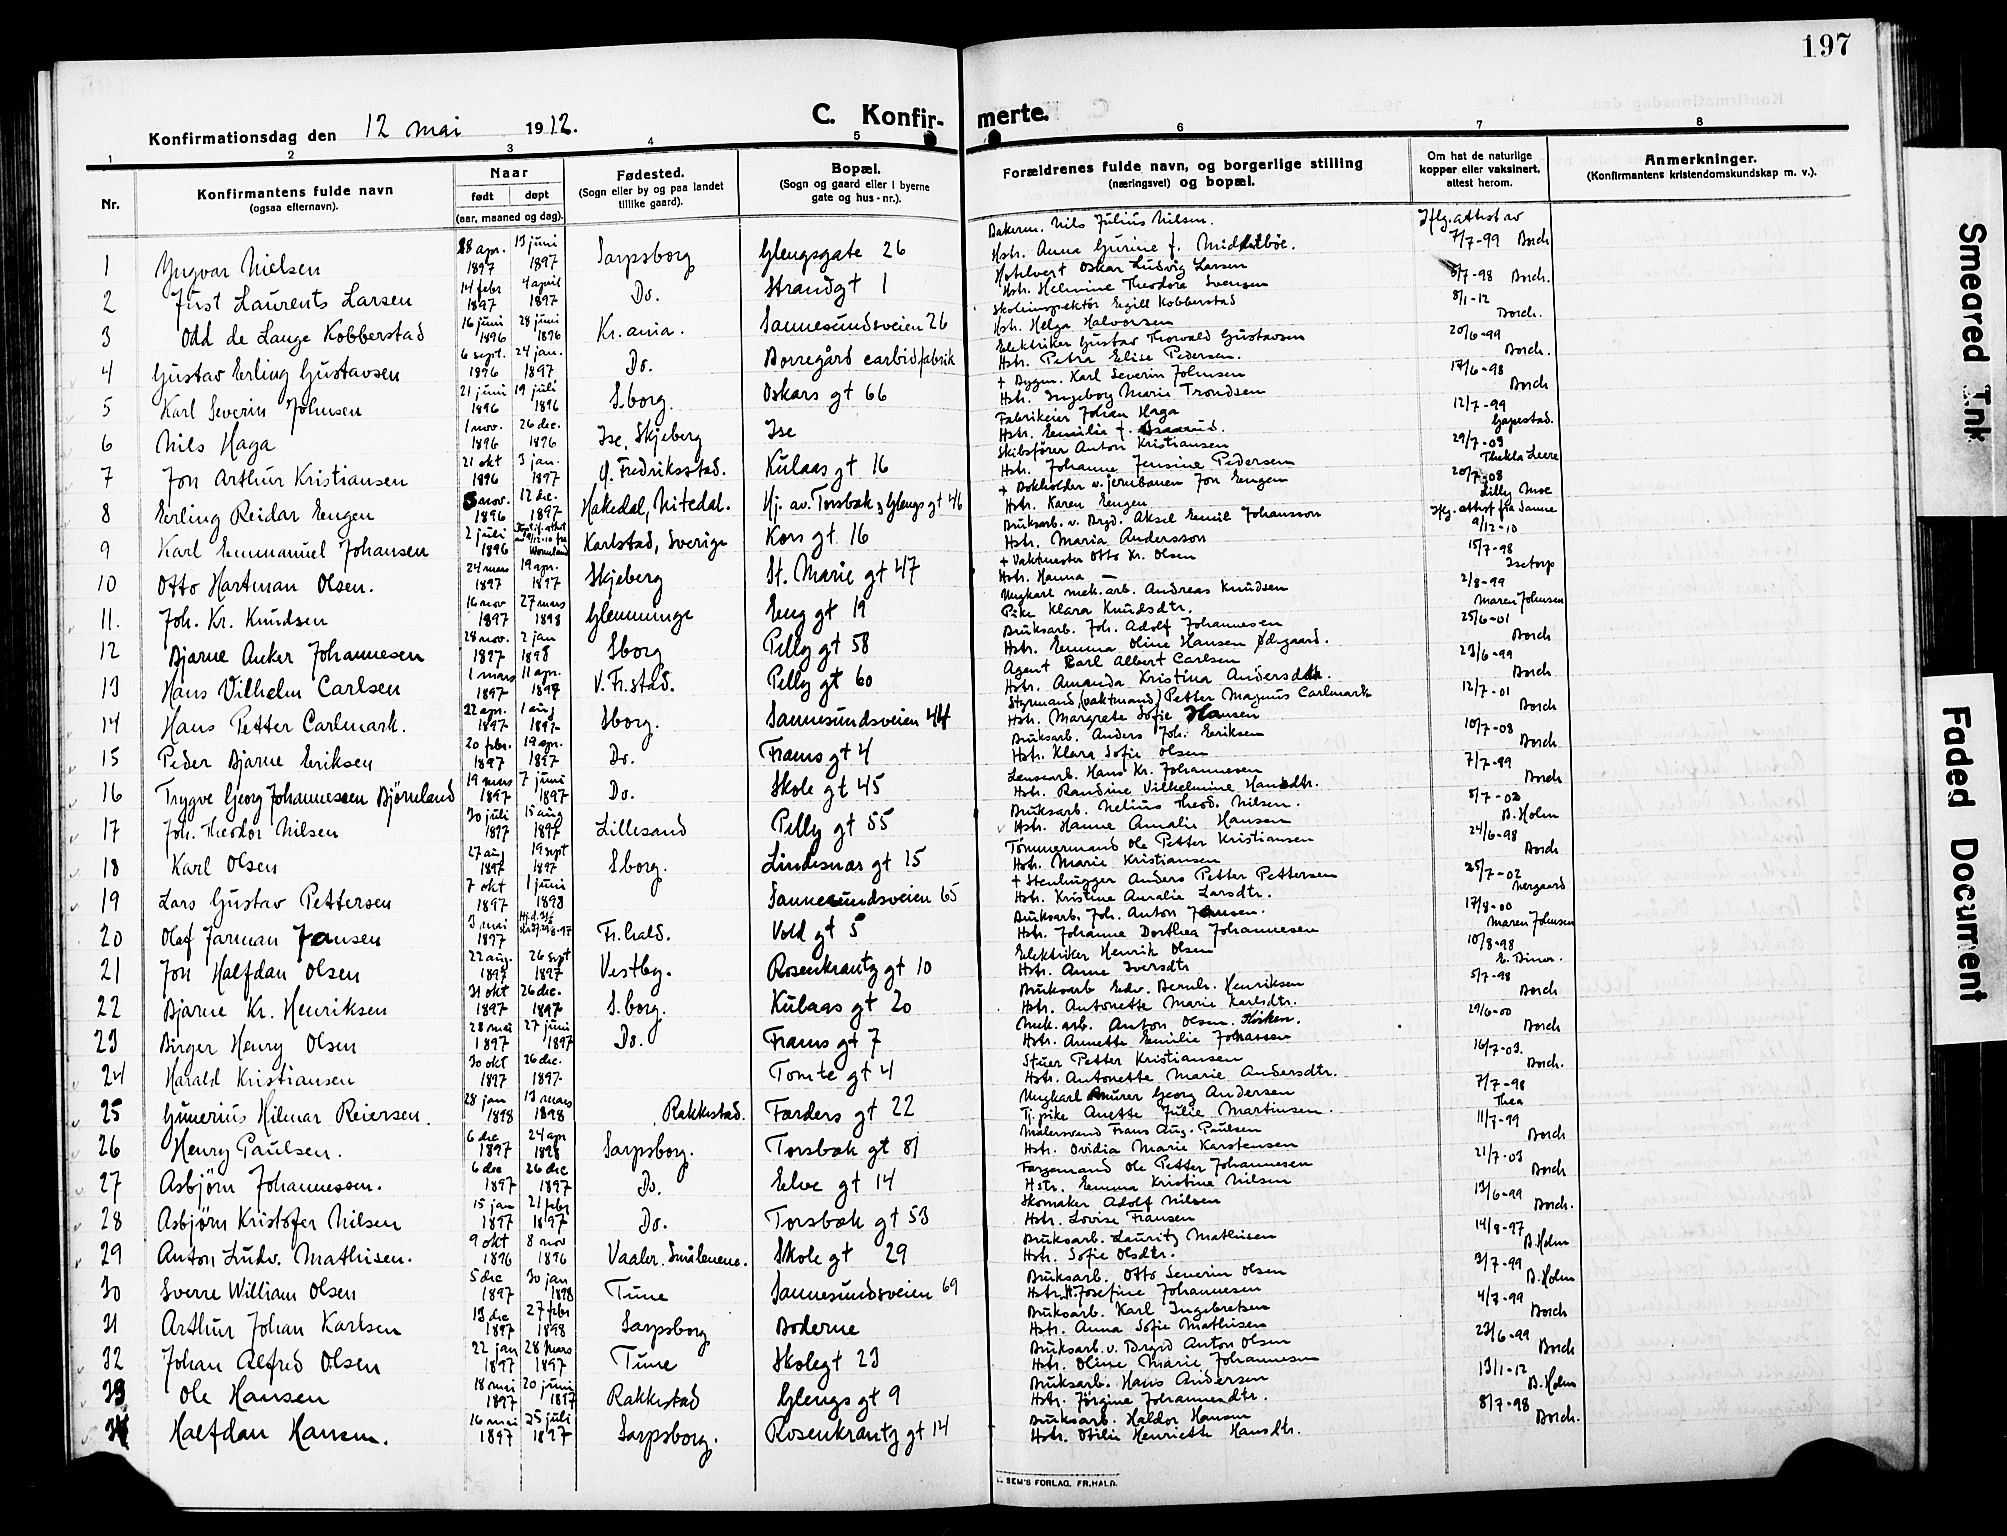 197
Konfirmationsdag den 12 mai 1912.
C. Konfirmerte.
1 2 3 4 5 6 7 8
Nr.
Konfirmantens fulde navn
(ogsaa efternavn).
Naar
født døpt
(aar, maaned og dag).
Fødested.
(Sogn eller by og paa landet
tillike gaard).
Bopæl.
(Sogn og gaard eller i byerne
gate og hus-nr.).
Forældrenes fulde navn, og borgerlige stilling
(næringsvei) og bopæl.
Om hat de naturlige
kopper eller vaksinert,
attest herom.
Anmerkninger.
(Konfirmantens kristendomskundskap m. v.).
1 Yngvar Nielsen 18 apr. 1897 13 juni 1897 Sarpsborg Glengsgate 26 Bakerm. Nils Julius Nilsen. Hstr. Anna Gurine f. Midtbøe. Iflg. attest av 7/7-99 Borch
2 Just Laurents Larsen 14 febr 1897 4 april 1897 Do. Strandgt 1 Hotelvert Oskar Ludvig Larsen Hstr. Helmine Theodora Svensen 5/7-98 Borch.
3 Odd de Lange Kobberstad 16 juni 1896 28 juni 1896 Kr.ania. Sannesundsveien 26 Skoleinspektør Egill Kobberstad Hstr. Helga Halvorsen 8/1-12 Borch.
4 Gustav Erling Gustavsen 6 sept. 1896 24 jan. 1897 Do. Borregård carbidfabrik Elektriker Gustav Thorvald Gustavsen Hstr. Petra Elise Pedersen. 20/6-99 Borch.
5 Karl Severin Johnsen 21 juni 1896 19 juli 1896 S.borg. Oskars gt 66 + Bygm. Karl Severin Johnsen Hstr. Ingeborg Marie Trondsen 17/6-98 Borch
6 Nils Haga 1 nov. 1896 26 dec. 1896 Ise, Skjeberg Ise Fabrikeier Johan Haga Hstr. Emilie f. 12/7-99 Gapestad.
7 Jon Arthur Kristiansen 21 okt 1896 3 jan. 1897 G. Fredriksstad. Kulaas gt 16 Skibsfører Anton Kristiansen Hstr. Johanne Jensine Pedersen 29/7-03 Thekla Leere
8 Erling Reidar Engen 5 nov. 1896 12 dec. 1897 Hakedal, Nitedal. Hj. av. Torsbæk & Glengs gt 46 + Bokholder v. jernbanen Jon Engen Hstr. Karen Engen 20/7-08 Lilly Moe
9 Karl Emmanuel Johansen 2 juli 1896 Karlstad, Sverige Kors gt 16 Bruksarb. v. Brgd. Aksel Emil Johansson Hstr. Maria Andersson Iflg. attest fra Sanne 9/12-10
10 Otto Hartman Olsen. 24 mars 1897 19 apr. 1897 Skjeberg St. Marie gt 47 + Vaktmester Otto Kr. Olsen Hstr. Hanna — 15/7-98 Isetorp
11. Joh. Kr. Knudsen 16 nov 1897 27 mars 1898 Glemminge Eng gt 19 Ungkarl mek.arb. Andreas Knudsen Pike Klara Knudsdtr. 2/8-99 Maren Johnsen
12 Bjarne Anker Johannesen 28 nov. 1897 2 jan 1898 Sborg Pelly gt 58 Bruksarb. Joh. Adolf Johannesen Hstr. Emma Oline Hansen Ødegaard. 25/6-01 Borch
13 Hans Vilhelm Carlsen 1 mars 1897 11 apr. 1897 V. Fr.stad. Pelly gt 60 Agent Carl Albert Carlsen Hstr. Amanda Kristina Andersdtr. 23/6-99 Borch
14 Hans Petter Carlmark. 22 apr. 1897 1 aug 1897 Sborg. Sannesundsveien 44 Styrmand, (vaktmand) Petter Magnus Carlmark Hstr. Margrete Sofie Hansen 12/7-01 Borch
15 Peder Bjarne Eriksen 20 febr. 1897 19 apr. 1897 Do. Frams gt 4 Bruksarb. Anders Joh. Eriksen Hstr. Klara Sofie Olsen 10/7-08 Borch
16 Trygve Georg Johannessen Bjørneland 19 mars 1897 7 juni 1897 Do. Skole gt 45 Lensearb. Hans Kr. Johannesen Hstr. Randine Vilhelmine Hansdtr. 7/7-99 Borch
17 Joh. Theodor Nilsen 30 juli 1897 15 aug 1897 Lillesand Pelly gt 55 Bruksarb. Nelius Theod. Nilsen. Hstr. Hanne Amalie Hansen 5/7-03 B. Holm
18 Karl Olsen 27 aug 1897 19 sept 1897 Sborg. Lindesnæs gt 15 Tømmermand Ole Petter Kristiansen Hstr. Marie Kristiansen 24/6-98 Borch
19 Lars Gustav Pettersen 7 okt 1897 1 juni 1898 Sannesundsveien 65 + Stenhugger Anders Petter Pettersen Hstr. Kristine Amalie Larsdtr. 25/7-02 Nergaard
20 Olaf Jarman Jansen 3 mai 1897 Fr.hald. Vold gt 5 Bruksarb. Joh. Anton Jansen. Hstr. Johanne Dorthea Johannesen 17/8-00 Maren Johnsen
21 Jon Halfdan Olsen 22 aug. 1897 26 sept 1897 Vestby. Rosenkrantz gt 10 Elektriker Henrik Olsen Hstr. Anne Iversdtr 10/8-98 E. Biner.
22 Bjarne Kr. Henriksen 31 okt 1897 26 dec. 1897 S.borg. Kulaas gt 20 Bruksarb Edv. Bernh. Henriksen Hstr. Antonette Marie Karlsdtr. 5/7-98 Borch
23 Birger Henry Olsen 28 mai 1897 27 juni 1897 Do. Frams gt 7 Mek. arb. Anton Olsen. Hstr. Annette Emilie Johansen 29/6-00 Borch
24 Harald Kristiansen 30 okt 1897 26 dec. 1897 Tomte gt 4 Stuer Petter Kristiansen Hstr. Antonette Marie Andersdtr. 16/7-03. Borch.
25 Gunerius Hilmar Reiersen. 28 jan 1898 13 mars 1898 Rakkestad. Færders gt 22 Ungkarl Murer Georg Andersen Tj. pike Anette Julie Martinsen. 7/7-98 Thea
26 Henry Paulsen. 6 dec 1897 24 apr 1898 Sarpsborg. Torsbæk gt 81 Malersvend Frans Aug. Paulsen Hstr. Ovidia Marie Karstensen 11/7-99 Borch
27 Asbjørn Johannessen. 6 dec 1897 26 dec 1897 Do. Elve gt 14 Færgemand Ole Petter Johannesen Hstr. Emma Kristine Nilsen 21/7-03 Borch
28 Asbjørn Kristofer Nilsen 15 jan 1897 21 febr 1897 Do. Torsbæk gt 53 Skomaker Adolf Nilsen Hstr. Lovise Fransen 13/6-99 Borch.
29 Anton Ludv. Mathisen. 9 okt 1896 8 nov 1896 Vaaler. Smålenene. Skole gt 29 Bruksarb. Lauritz Mathisen Hstr. Sofie Olsdtr. 14/8-97 B. Holm
30 Sverre William Olsen 5 dec 1897 30 jan 1898 Tune Sannesundsveien 69 Bruksarb. Otto Severin Olsen Hstr. H. Josefine Johannesen 3/7-99 B. Holm
31 Arthur Johan Karlsen 13 dec 1897 27 febr 1898 Sarpsborg Boderne Bruksarb. Karl Ingebretsen Hstr. Anna Sofie Mathisen 4/7-99 Borch
32 Johan Alfred Olsen 22 jan 1897 28 mars 1897 Tune Skolegt 23 Bruksarb. v. Brgrd Anton Olsen Hstr. Oline Marie Johannesen 23/6-99 Borch
33 Ole Hansen 18 mai 1897 20 juni 1897 Rakkestad Glengs gt 9 Bruksarb. Hans Andersen Hstr. Jørgine Johannesdtr. 13/1-12 B. Holm
34 Halfdan Hansen. 16 mai 1897 25 juli 1897 Sarpsborg. Rosenkrantz gt 14 Bruksarb. Haldor Hansen Hstr. Otilie Henriette Hansdtr. 8/7-98 Borch.
SEM'S FORLAG, FR.HALD.
Smeared Ink
Faded Document